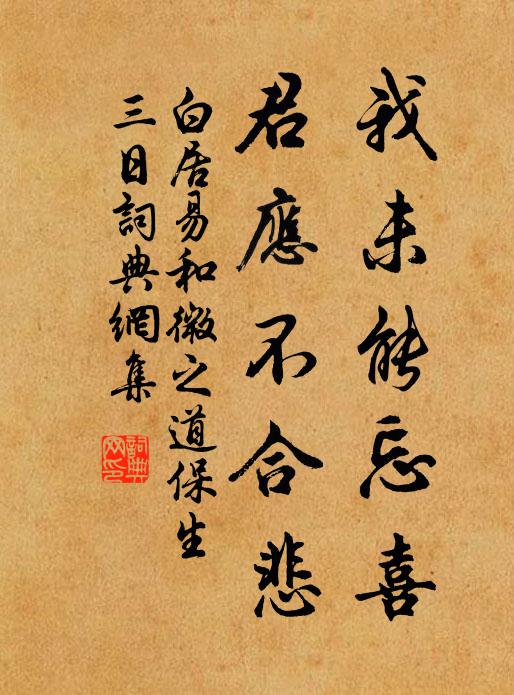 我未能忘喜
君應不合悲
白居易和微之道保生
三日詞典網集
詞典网印